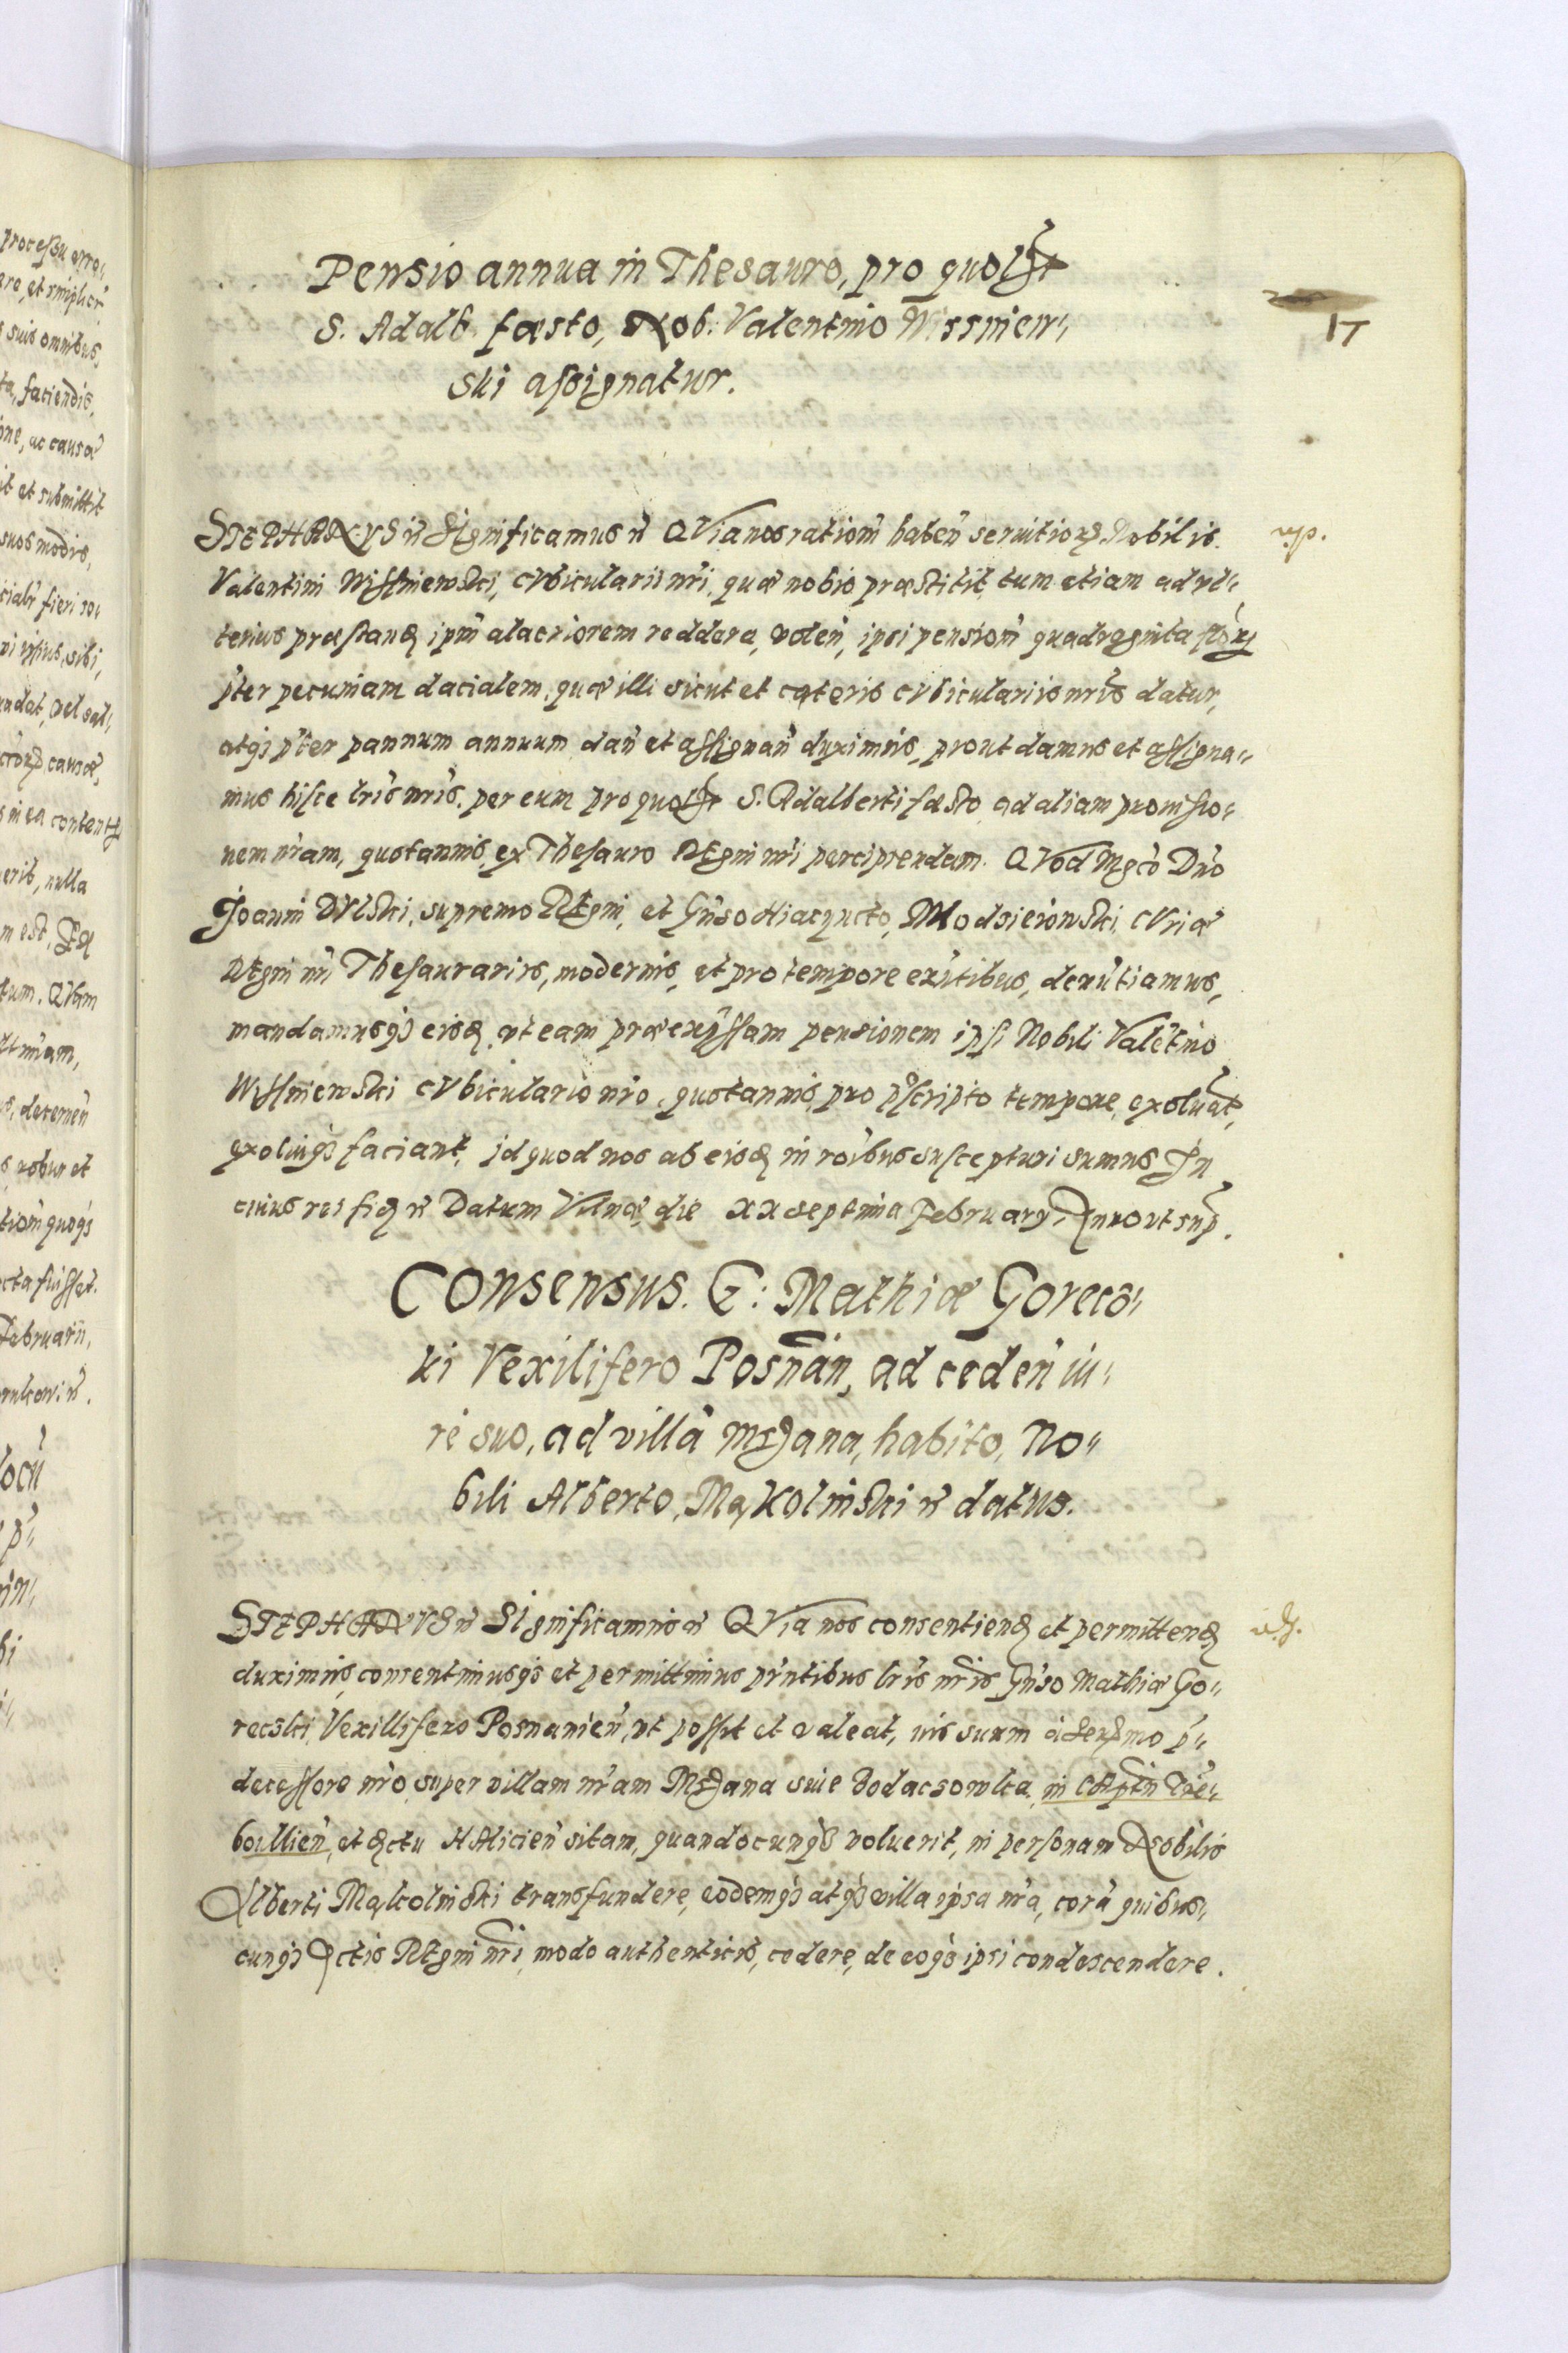 17
Pensio annua in Thesauro, pro quolt
S. Adalb. fæsto, Nob. Valentino Wissniew„
ski assignatur.
STEPHANVS etc̃ Significamus etc̃ QVia nos rationẽ haben̄ seruitiorꝝ Nobilis
Valentini Wissniewski, cVbicularii nr̃i, quæ nobis præstitit, tum etiam ad vl„
terius præstand ipm̄ alacriorem reddere, volen̄, ipsi pensionẽ quadraginta flor
p̃ter pecuniam dacialem, quæ illi sicut et cæteris cVbiculariis nr̃is datur,
atqꝫ p̃ter pannum annuum dan̄ et assignan̄ duximus, prout damus et assigna„
mus hisce lr̃is nr̃is, per eum pro quolt S. Adalberti fæsto, ad aliam prouisio„
nem nr̃am, quotannis, ex Thesauro REgni nr̃i percipiendam. QVod Mgc̃o Dn̄o
Joanni DVlski, supremo REgni, et Gn̄so Hiacyncto, Modsieiowski, cVriæ
REgni nr̃i Thesaurariis, modernis, et pro tempore exn̄tibus, denũtiamus,
mandamusqꝫ eisd, vt eam præexp̃ssam pensionem ipsi Nobili Valẽtino
Wissniewski cVbiculario nr̃o, quotannis, pro p̃scripto tempore, exoluat,
exoluiqꝫ faciant, id quod nos ab eisd in rõibus suscepturi sumus In
cuius rei fid etc̃ Datum Vilnæ, die xx septima February, Anno vt sup.
Consensus. G: Mathiæ Gorecs„
ki Vexilifero Posnãn, ad ceden̄ iu„
re suo, ad villã Msana, habito, No„
bili Alberto, Mąkolinski etc̃ datus.
STEPHANVS etc̃ Significamus etc̃ QVia nos consentiend et permittend
duximus, consentimusqꝫ et permittimus pñtibus lr̃is nr̃is Gn̄so Mathiæ Go„
recski, Vexillifero Posnanien̄, vt possit et valeat, ius suum à Serꝫmo p̃„
decessore nr̃o super villam nr̃am Msana siue Dodacsowka, in CApitn̄ Tre„
bowlien̄, et Dctu HAlicien̄ sitam, quandocunqꝫ voluerit, in personam Nobilis
Alberti Mąkolinski transfundere, eodemqꝫ atqꝫ villa ipsa nr̃a, corã quibus„
cunqꝫ Actis REgni nr̃i, modo authenticis, cedere, de eoqꝫ ipsi condescendere.